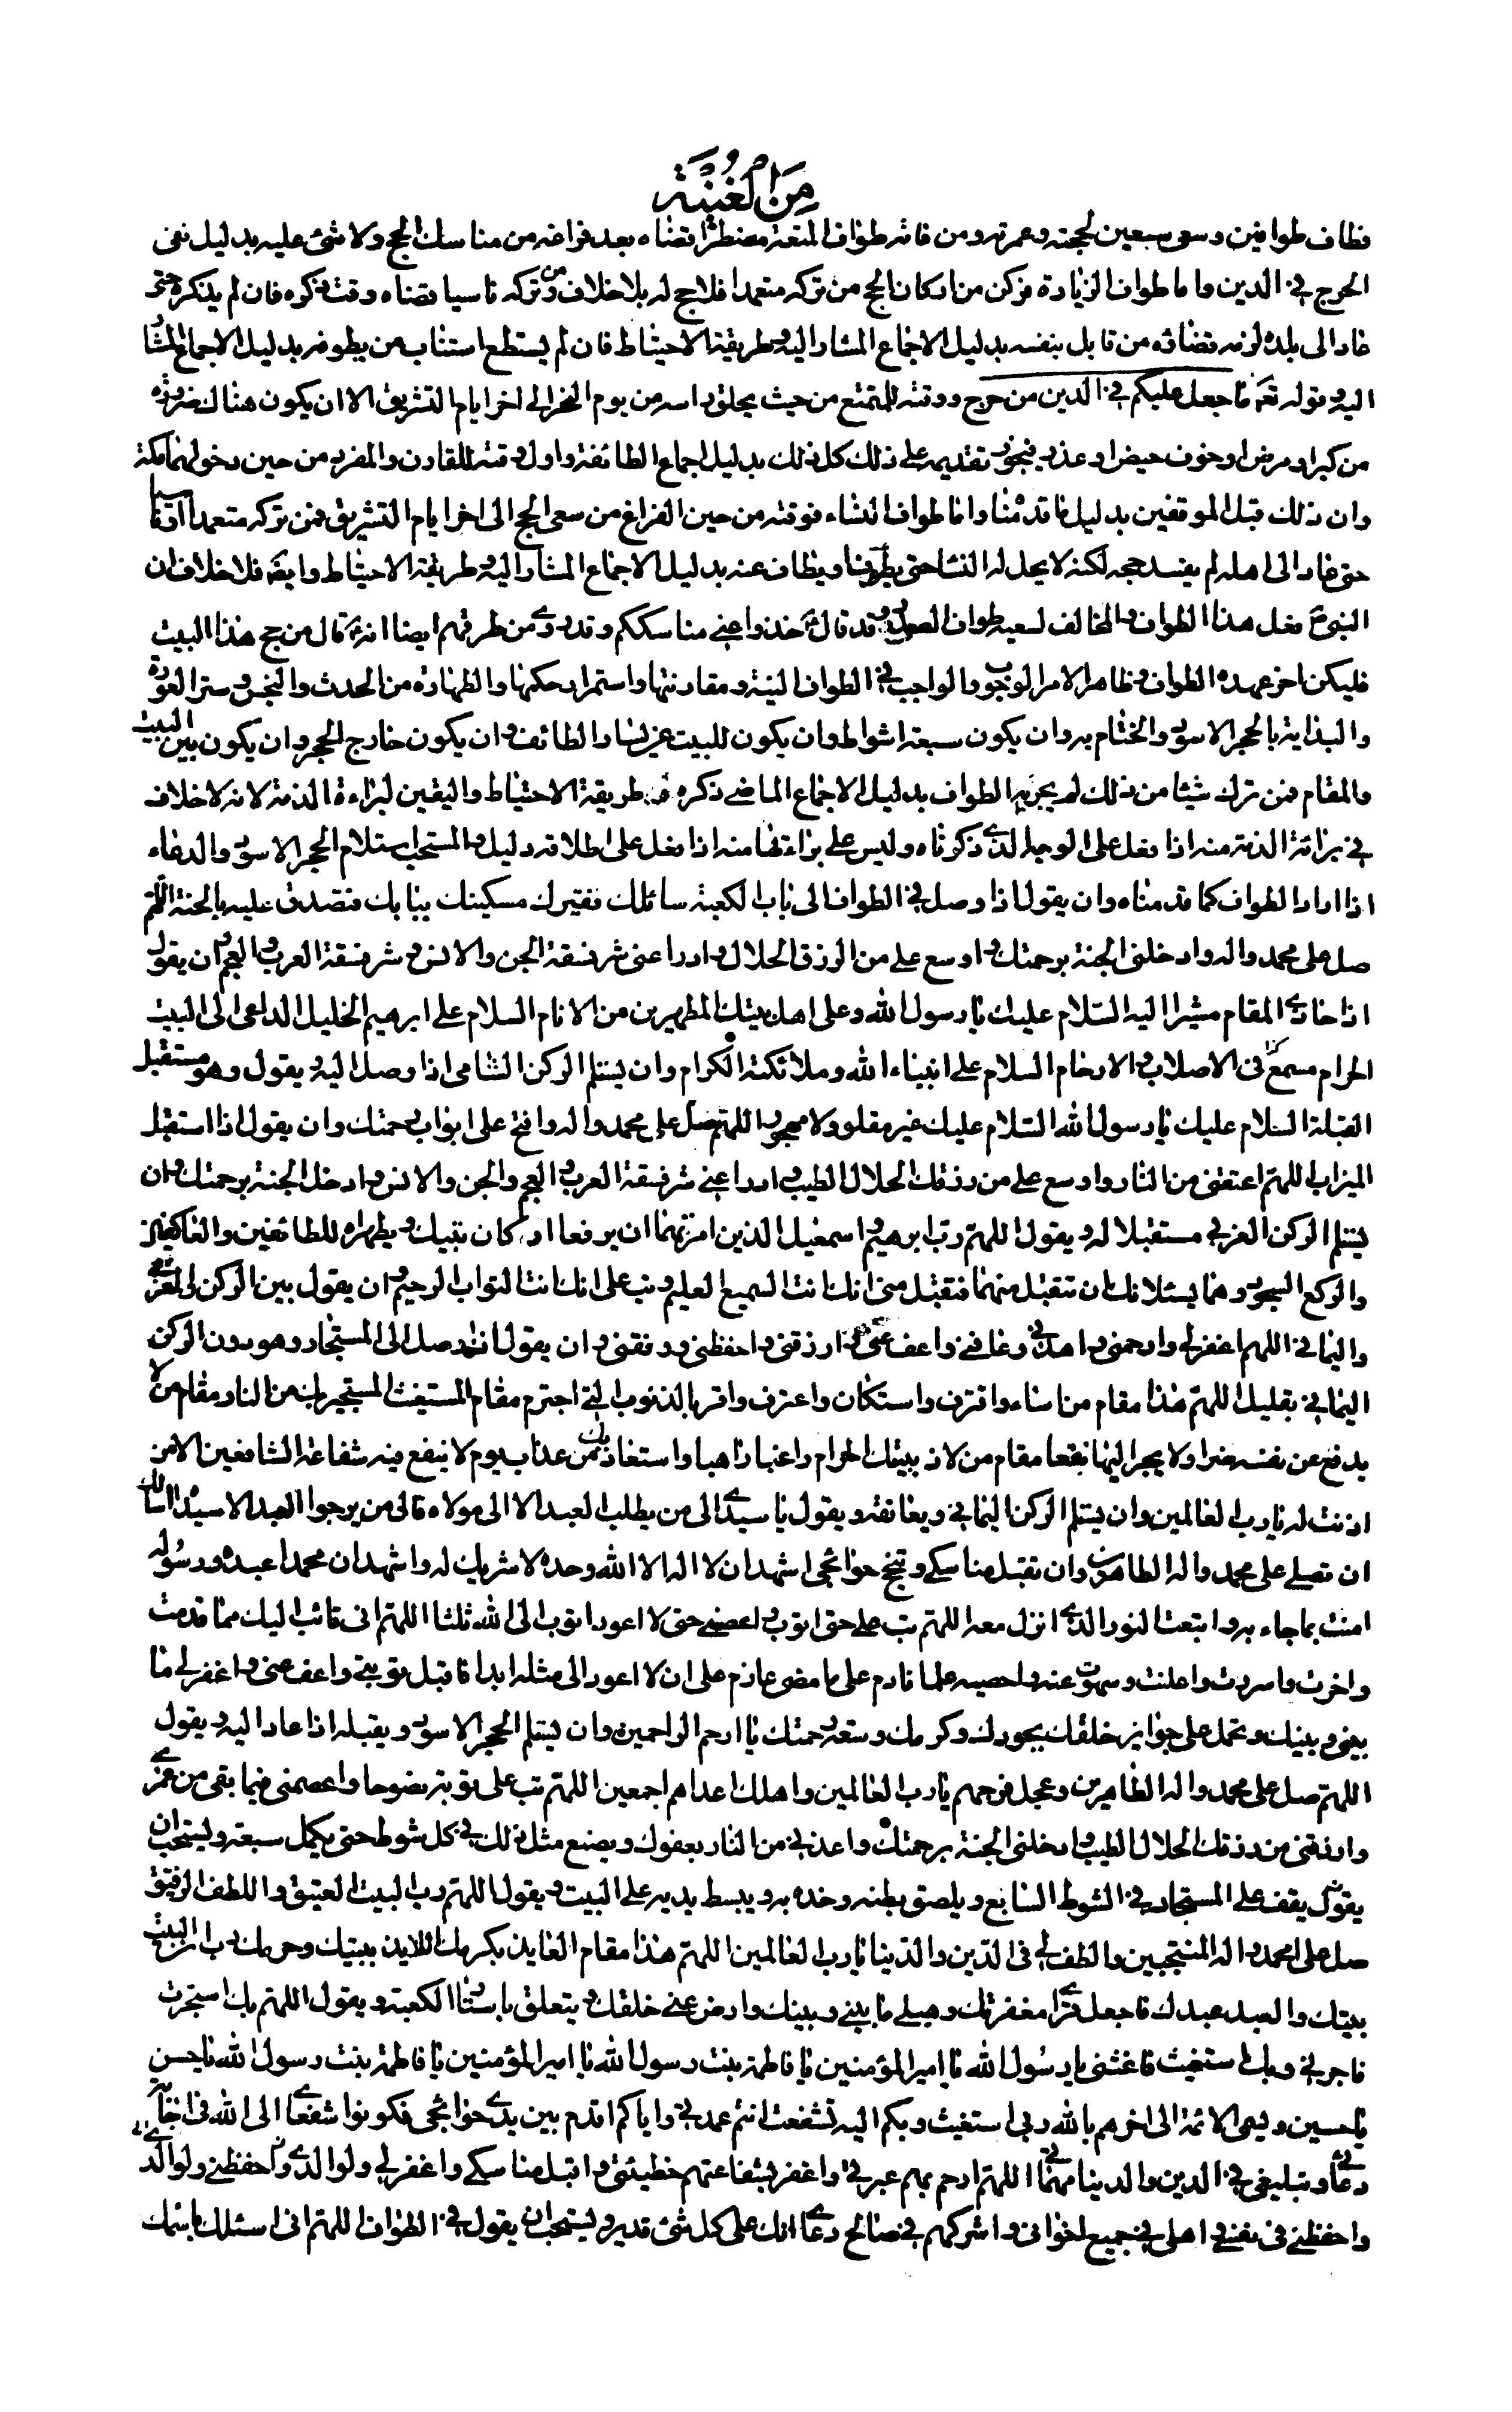 من الغنية
فطاف طوافين وسعى سعيين لحجته وعمرته ومن فاته طواف المتعة مضطرا قضاه بعد فراغه من مناسك الحج ولا شئ عليه بدليل نفى
الحرج في الدين واما طواف الزيارة فركن من اركان الحج من تركه متعمدا فلا حج له بلا خلاف ومن تركه ناسيا قضاه وقت ذكره فان لم يذكره حتى
عاد الى بلده لزمه قضائه من قابل بنفسه بدليل الاجماع المشار اليه وطريقة الاحتياط فان لم يستطع استناب من يطوفه بدليل الاجماع المشار
اليه وقوله تعم ما جعل عليكم في الدين من حرج ووقته للمتمتع من حيث يحلق راسه من يوم النحر الى اخر ايام التشريق الا ان يكون هناك ضرورة
من كبر او مرض او خوف حيض او عذر فيجوز تقديمه على ذلك كل ذلك بدليل اجماع الطائفة واول وقته للقارن والمفرد من حين دخولهما مكة
وان ذلك قبل الموقفين بدليل ما قدمناه واما طواف النساء فوقته من حين الفراغ من سعى الحج الى اخر ايام التشريق فمن تركه متعمدا او ناسيا
حتى عاد الى اهله لم يفسد حجه لكنه لا يحل له النساء حتى يطوف او يطاف عنه بدليل الاجماع المشار اليه وطريقة الاحتياط وايضا فلا خلاف ان
النبي ص فعل هذا الطواف والمخالف يسميه طواف الصدر وقد قال ص خذوا عني مناسككم وقد روى من طرقهم ايضا انه قال من حج هذا البيت
فليكن اخر عهده الطواف وظاهر الامر الوجوب والواجب في الطواف النية ومقارنتها واستمرار حكمها والطهارة من الحدث والنجس وستر العورة
والبداية بالحجر الاسود والختام به وان يكون سبعة اشواط وان يكون البيت عن يسار الطائف وان يكون خارج الحجر وان يكون بين البيت
والمقام فمن ترك شيئا من ذلك لم يجزه الطواف بدليل الاجماع الماضي ذكره وطريقة الاحتياط واليقين لبراءة الذمة لانه لا خلاف
في برائة الذمة منه اذا فعل على الوجه الذي ذكرناه وليس على براءتها منه اذا فعل على اطلاقه دليل والمستحب استلام الحجر الاسود والدعاء
اذا اراد الطواف كما قدمناه وان يقول اذا وصل في الطواف الى باب الكعبة سائلك فقيرك مسكينك ببابك فتصدق عليه بالجنة اللهم
صل على محمد واله وادخلني الجنة برحمتك واوسع علي من الرزق الحلال وادرا عنى شر فسقة الجن والانس وشر فسقة العرب والعجم وان يقول
اذا حاذى المقام مشيرا اليه السلام عليك يا رسول الله وعلى اهل بيتك المطهرين من الاثام السلام على ابرهيم الخليل الداعى الى البيت
الحرام مسمع من في الاصلاب والارحام السلام على انبياء الله وملائكته الكرام وان يستلم الركن الشامى اذا وصل اليه ويقول وهو مستقبل
القبلة السلام عليك يا رسول الله السلام عليك غير مقلو ولا مهجور اللهم صل على محمد واله وافتح على ابواب رحمتك وان يقول اذا استقبل
الميزاب اللهم اعتقني من النار واوسع على من رزقك الحلال الطيب وادرا عنى شر فسقة العرب والعجم والجن والانس وادخل الجنة برحمتك وان
يستلم الركن الغربي مستقبلا له ويقول اللهم رب ابرهيم واسمعيل الذين امرتهما ان يرفعا اركان بيتك ويطهراه للطائفين والعاكفين
والركع السجود وهما يسئلانك ان تتقبل منهما فتقبل منى انك انت السميع العليم وتب على انك انت التواب الرحيم وان يقول بين الركن الغربي
واليماني اللهم اغفر لي وارحمني واهدني وعافني واعف عنى وارزقنى واحفظنى ووفقنى وان يقول اذا وصل الى المستجار وهو دون الركن
اليماني بقليل اللهم هذا مقام من اساء واقترف واستكان واعترف واقر بالذنوب التي اجترم مقام المستغيث المستجير بك من النار مقام من لا
يدفع عن نفسه ضرا ولا يجر اليها نفعا مقام من لاذ ببيتك الحرام راغبا راهبا واستعاذ بك من عذاب يوم لا ينفع فيه شفاعة الشافعين الا من
اذنت له يا رب العالمين وان يستلم الركن اليماني ويعانقه ويقول يا سيدى الى من يطلب العبد الا الى مولاه والى من يرجوا العبد الا سيده اسئلك
ان تصلي على محمد واله الطاهرين وان تقبل مناسكي وتنجح حوائجى اشهد ان لا اله الا الله وحده لا شريك له واشهد ان محمدا عبده ورسوله
امنت بما جاء به واتبعت النور الذي انزل معه اللهم تب على حتى اتوب واعصمني حتى لا اعود اتوب الى الله ثلثا اللهم انى تائب اليك مما قدمت
واخرت واسررت واعلنت وسهوت عنه واحصيه علما نادم على ما مضى عازم على ان لا اعود الى مثله ابدا فاقبل توبتي واعف عنى واغفر لي ما
بيني وبينك وتحمل على جوايز خلقك بجودك وكرمك وسعة رحمتك يا ارحم الراحمين وان يستلم الحجر الاسود ويقبله اذا عاد اليه ويقول
اللهم صل على محمد واله الطاهرين وعجل فرجهم يا رب العالمين واهلك اعداهم اجمعين اللهم تب على توبة نصوحا واعصمنى فيما بقى من عمرى
وارزقنى من رزقك الحلال الطيب وادخلنى الجنة برحمتك واعذني من النار بعفوك ويصنع مثل ذلك في كل شوط حتى يكمل سبعة ويستحب ان
يقول يقف على المستجار في الشوط السابع ويلصق بطنه وخده به ويبسط يديه على البيت ويقول اللهم رب البيت العتيق واللطف الرفيق
صل على محمد واله المنتجبين والطف لي في الدين والدنيا يا رب العالمين اللهم هذا مقام العايذ بكرمك اللايذ ببيتك وحرمك رب البيت
بيتك والعبد عبدك فاجعل قراى مغفرتك وهب لي ما بيني وبينك وارض عنى خلقك ويتعلق باستار الكعبة ويقول اللهم بك استجرت
فاجرني وبك استغيث فاغثنى يا رسول الله يا امير المؤمنين يا فاطمة بنت رسول الله يا حسن
يا حسين ويسمى الائمة الى اخرهم بالله ربي استغيث وبكم اليه تشفعت انتم عمدتي واياكم اقدم بين يدى حوائجى فكونوا شفعائى الى الله في اجابة
دعائى وتبليغى في الدين والدنيا مهماتى اللهم ارحم بهم عبرتي واغفر بشفاعتهم خطيئتى واقبل مناسكي واغفر لي ولوالدي واحفظني ولوالدى
واحفظني في نفسي واهلي في جميع اخوانى واشركهم في صالح دعائى انك على كل شئ قدير ويستحب ان يقول في الطواف اللهم انى اسئلك باسمك